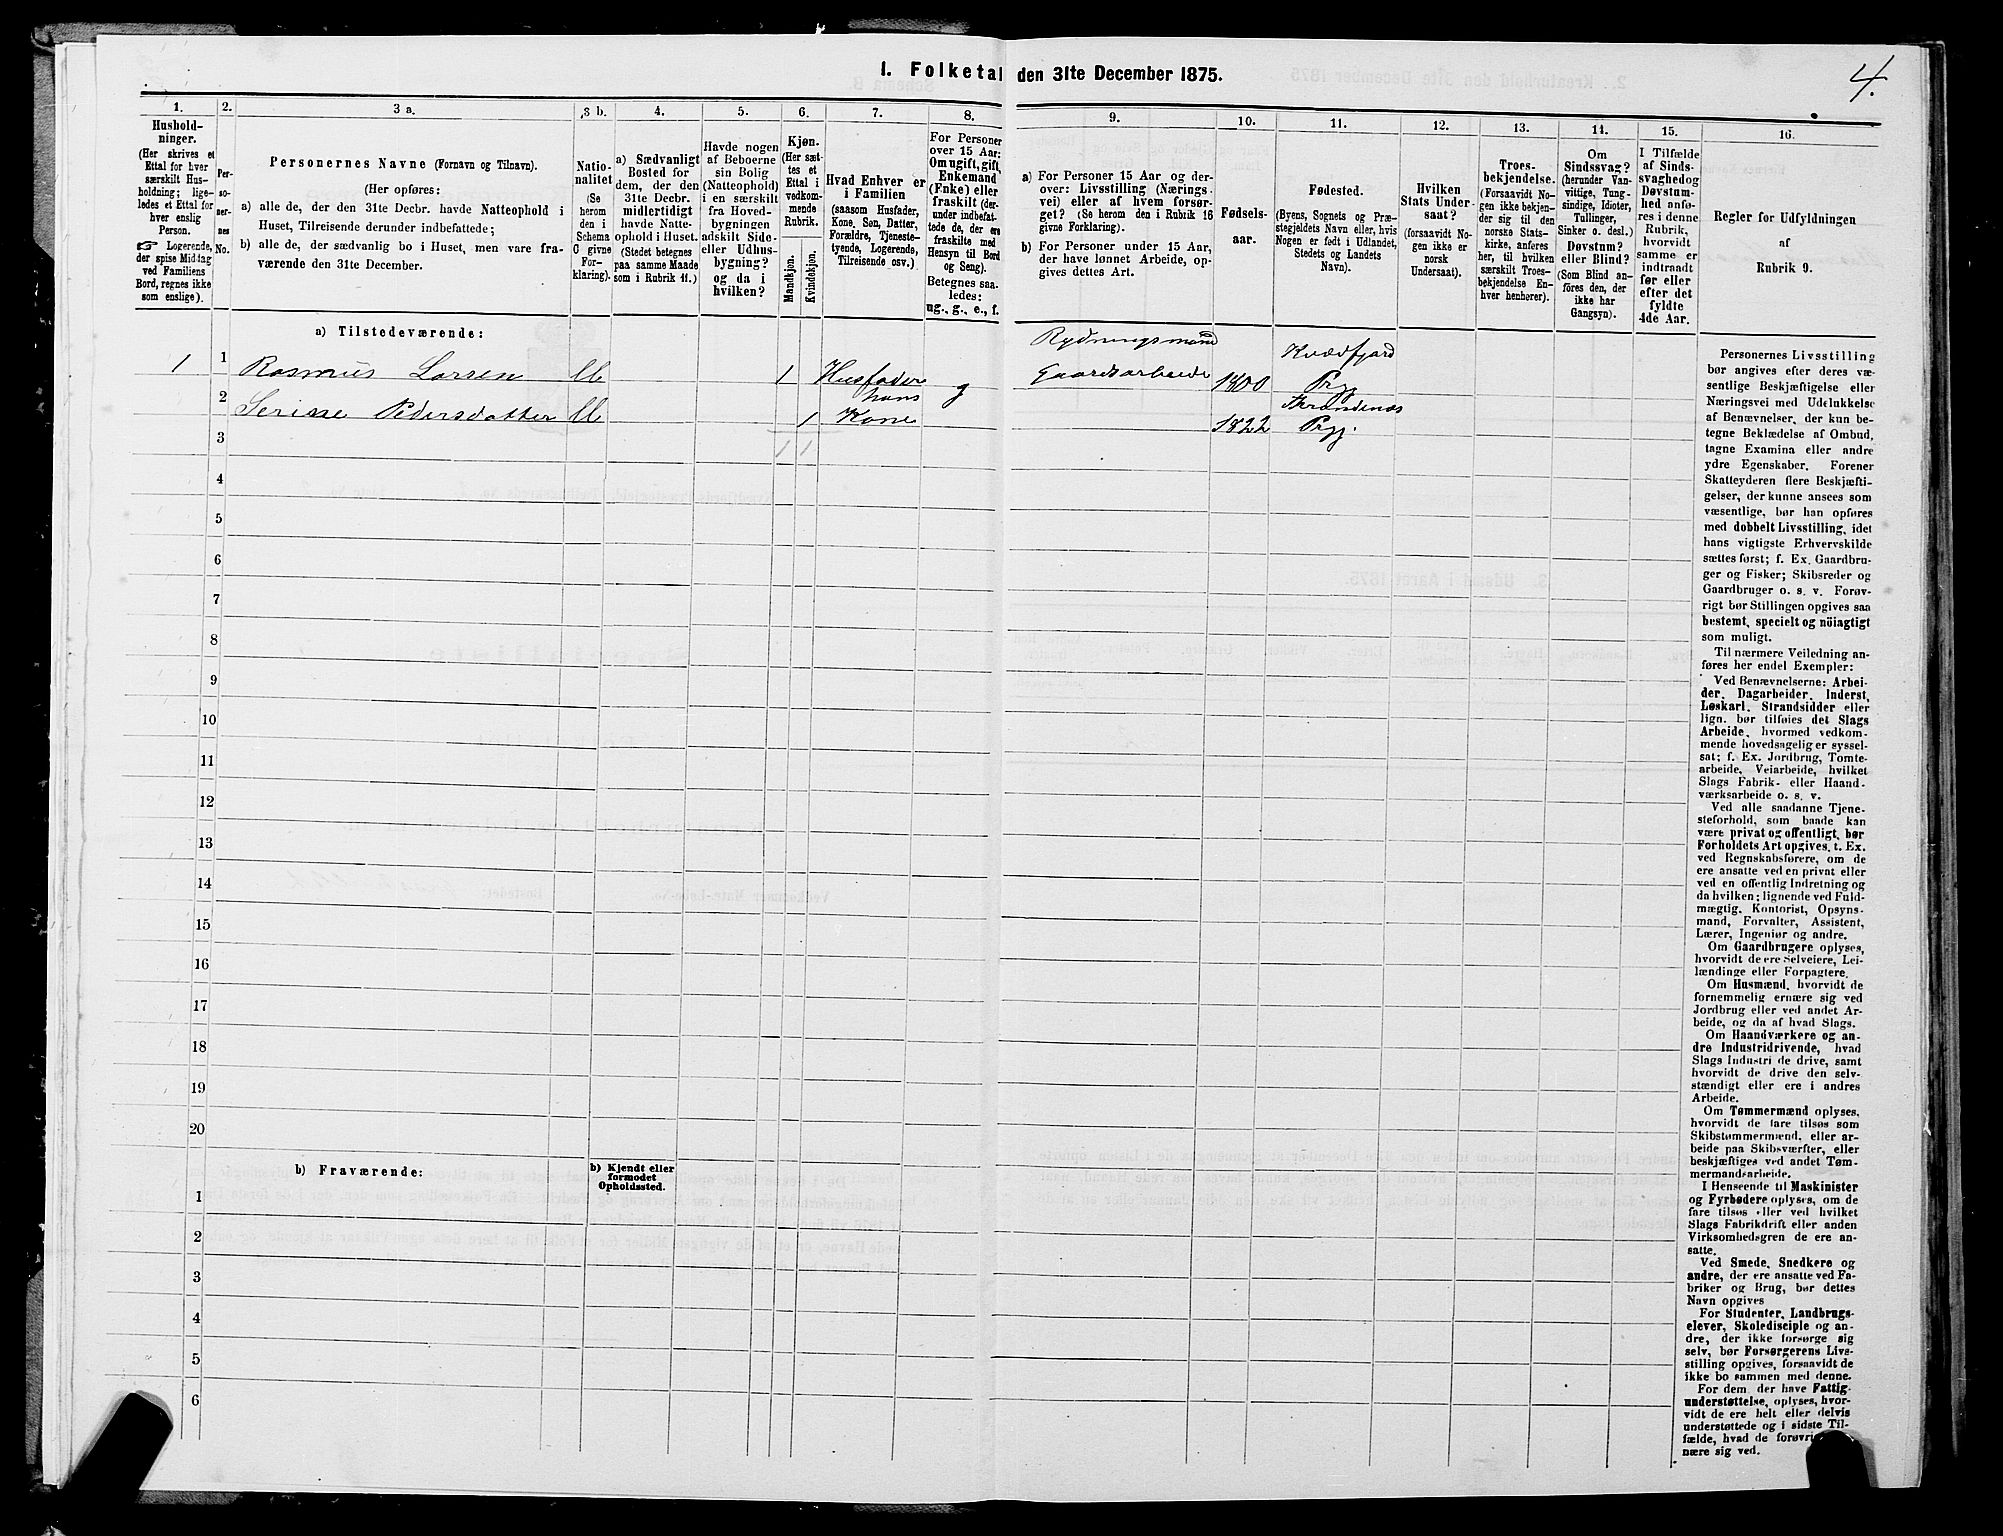 1. Folketal den 31te December 1875.
4.
1. 2. 3 a. 3 b. 4. 5. 6. 7. 8. 9. 10. 11. 12. 13. 14. 15. 16.
Hushold-
ninger.
(Her skrives et
Ettal for hver
særskilt Hus-
holdning; lige-
ledes et Ettal for
hver enslig
Person.
☞ Logerende,
der spise Middag
ved Familiens
Bord, regnes ikke
som enslige).
Per-
so-
ner-
nes
No.
Personernes Navne (Fornavn og Tilnavn).
(Her opføres:
a) alle de, der den 31te Decbr. havde Natteophold i
Huset, Tilreisende derunder indbefattede;
b) alle de, der sædvanlig bo i Huset, men vare fra-
værende den 31te December.
Natio-
nalitet
(Se
herom
den i
Schema
C givne
For-
klaring).
a) Sædvanligt
Bosted for
dem, der den
31te Decbr.
midlertidigt
havde Natte-
ophold i Huset.
(Stedet betegnes
paa samme Maade
som i Rubrik 11.)
Havde nogen
af Beboerne
sin Bolig
(Natteophold)
i en særskilt
fra Hoved-
bygningen
adskilt Side-
eller Udhus-
bygning?
og da i
hvilken?
Kjøn.
(Her sæt-
tes et
Ettal i
vedkom-
mende
Rubrik.
Mandkjøn.
Kvindekjøn.
Hvad Enhver er
i Familien
(saasom Husfader,
Kone, Søn, Datter,
Forældre, Tjeneste-
tyende, Logerende,
Tilreisende osv.)
For Personer
over 15 Aar:
Om ugift, gift,
Enkemand
(Enke) eller
fraskilt (der-
under indbefat-
tede de, der ere
fraskilte med
Hensyn til Bord
og Seng).
Betegnes saa-
ledes:
ug., g., e., f.
a) For Personer 15 Aar og der-
over: Livsstilling (Nærings-
vei) eller af hvem forsør-
get? (Se herom den i Rubrik 16
givne Forklaring).
b) For Personer under 15 Aar,
der have lønnet Arbeide, op-
gives dettes Art.
Fødsels-
aar.
Fødested.
(Byens, Sognets og Præ-
stegjeldets Navn eller, hvis
Nogen er født i Udlandet,
Stedets og Landets
Navn).
Hvilken
Stats Under-
saat?
(forsaavidt No-
gen ikke er
norsk
Undersaat).
Troes-
bekjendelse.
(Forsaavidt No-
gen ikke bekjen-
der sig til den
norske Stats-
kirke, anføres
her, til hvilken
særskilt Troes-
bekjendelse En-
hver henhører).
Om
Sindssvag?
(herunder Van-
vittige, Tung-
sindige, Idioter,
Tullinger,
Sinker o. desl.)
Døvstum?
eller Blind?
(Som Blind an-
föres den, der
ikke har
Gangsyn).
I Tilfælde
af Sinds-
svaghed og
Døvstum-
hed anfø-
res i denne
Rubrik,
hvorvidt
samme er
indtraadt
før eller
efter det
fyldte
4de Aar.
Regler for Udfyldningen
af
Rubrik 9.
a) Tilstedeværende:
Rydningsmand
Kvædfjord
1 1 Rasmus Larsen U 1 Husfader g Gaardsarbeide 1800 Prgj
hans Throndenæs
2 Serine Pedersdatter U 1 Kone 1822 Prgj.
3 1 1
4
5
6
7
8
9
10
11
12
13
14
15
16
17
18
19
20
b) Fraværende:
b) Kjendt eller
formodet
Opholdssted.
1
2
3
4
5
6
Personernes Livsstilling
bør angives efter deres væ-
sentlige Beskjæftigelse eller
Næringsvei med Udelukkelse
af Benævnelser, der kun be-
tegne Beklædelse af Ombud,
tagne Examina eller andre
ydre Egenskaber. Forener
Skatteyderen flere Beskjæfti-
gelser, der kunne ansees som
væsentlige, bør han opføres
med dobbelt Livsstilling, idet
hans vigtigste Erhvervskilde
sættes først; f. Ex. Gaardbru-
ger og Fisker; Skibsreder og
Gaardbruger o. s. v. Forøv-
rigt bør Stillingen opgives saa
bestemt, specielt og nöiagtigt
som muligt.
Til nærmere Veiledning an-
føres her endel Exempler:
Ved Benævnelserne: Arbei-
der, Dagarbeider, Inderst,
Løskarl, Strandsidder eller
lign. bør tilføies det Slags
Arbeide, hvormed vedkom-
mende hovedsagelig er syssel-
sat; f. Ex. Jordbrug, Tomte-
arbeide, Veiarbeide, hvilket
Slags Fabrik- eller Haand-
værksarbeide o. s. v.
Ved alle saadanne Tjene-
steforhold, som baade kan
være privat og offentligt, bør
Forholdets Art opgives, t. Ex.
ved Regnskabsførere, om de
ere ansatte ved en privat eller
ved en offentlig Indretning og
da hvilken; lignende ved Fuld-
mægtig, Kontorist, Opsyns-
mand, Forvalter, Assistent,
Lærer, Ingeniør og andre.
Om Gaardbrugere oplyses,
hvorvidt de ere Selveiere, Lei-
lændinge eller Forpagtere.
Om Husmænd, hvorvidt de
fornemmelig ernære sig ved
Jordbrug eller ved andet Ar-
beide, og da af hvad Slags.
Om Haandværkere og an-
dre Industridrivende, hvad
Slags Industri de drive, samt
hvorvidt de drive den selv-
stændigt eller ere i andres
Arbeide.
Om Tømmermænd oplyses,
hvorvidt de fare tilsøs som
Skibstømmermænd, eller ar-
beide paa Skibsværfter, eller
beskjæftiges ved andet Tøm-
mermandsarbeide.
I Henseende til Maskinister
og Fyrbødere oplyses, om de
fare tilsøs eller ved hvilket
Slags Fabrikdrift eller anden
Virksomhedsgren de ere an-
satte.
Ved Smede, Snedkere og
andre, der ere ansatte ved Fa-
briker og Brug, bør dettes
Navn opgives
For Studenter, Landbrugs-
elever, Skoledisciple og an-
dre, der ikke forsørge sig
selv, bør Forsørgerens Livs-
stilling opgives, forsaavidt de
ikke bo sammen med denne.
For dem, der have Fattig-
understøttelse, oplyses, hvor-
vidt de ere helt eller delvis
understøttede og i sidste Til-
fælde, hvad de forøvri
nære sig ved.